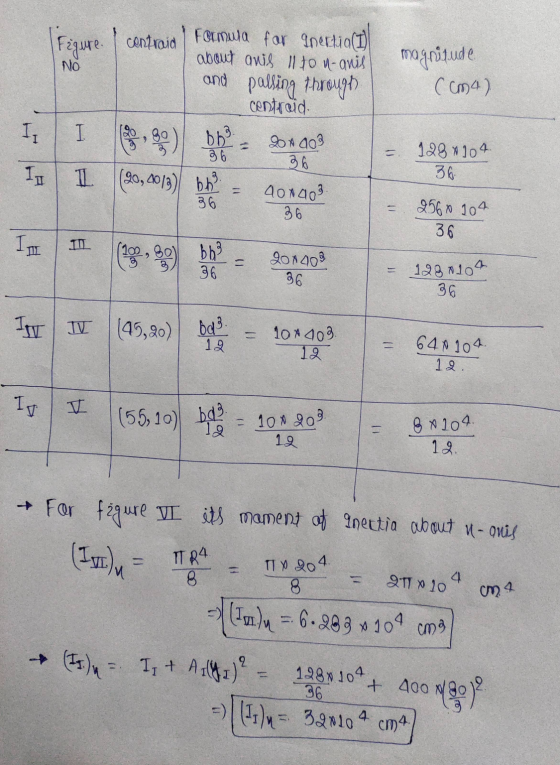 Figure. NO | centroid | Formula for Inertia(I) about axis 11 to x-axis and passing through centroid. | magnitude (cm4)
I_I | I | (20/3, 80/3) | bh³/36 = 20×40³/36 | = 128×10⁴/36
I_II | II | (20, 40/3) | bh³/36 = 40×40³/36 | = 256×10⁴/36
I_III | III | (100/3, 80/3) | bh³/36 = 20×40³/36 | = 128×10⁴/36
I_IV | IV | (45,20) | bd³/12 = 10×40³/12 | = 64×10⁴/12.
I_V | V | (55,10) | bd³/12 = 10×20³/12 | = 8×10⁴/12.
→ For figure VI its moment of Inertia about x-axis
(I_VI)x = πR⁴/8 = π×20⁴/8 = 2π×10⁴ cm4
⇒ (I_VI)x = 6.283×10⁴ cm3
→ (I_I)x = I_I + A_I(y_I)² = 128×10⁴/36 + 400×(80/3)²
⇒ (I_I)x = 32×10⁴ cm4